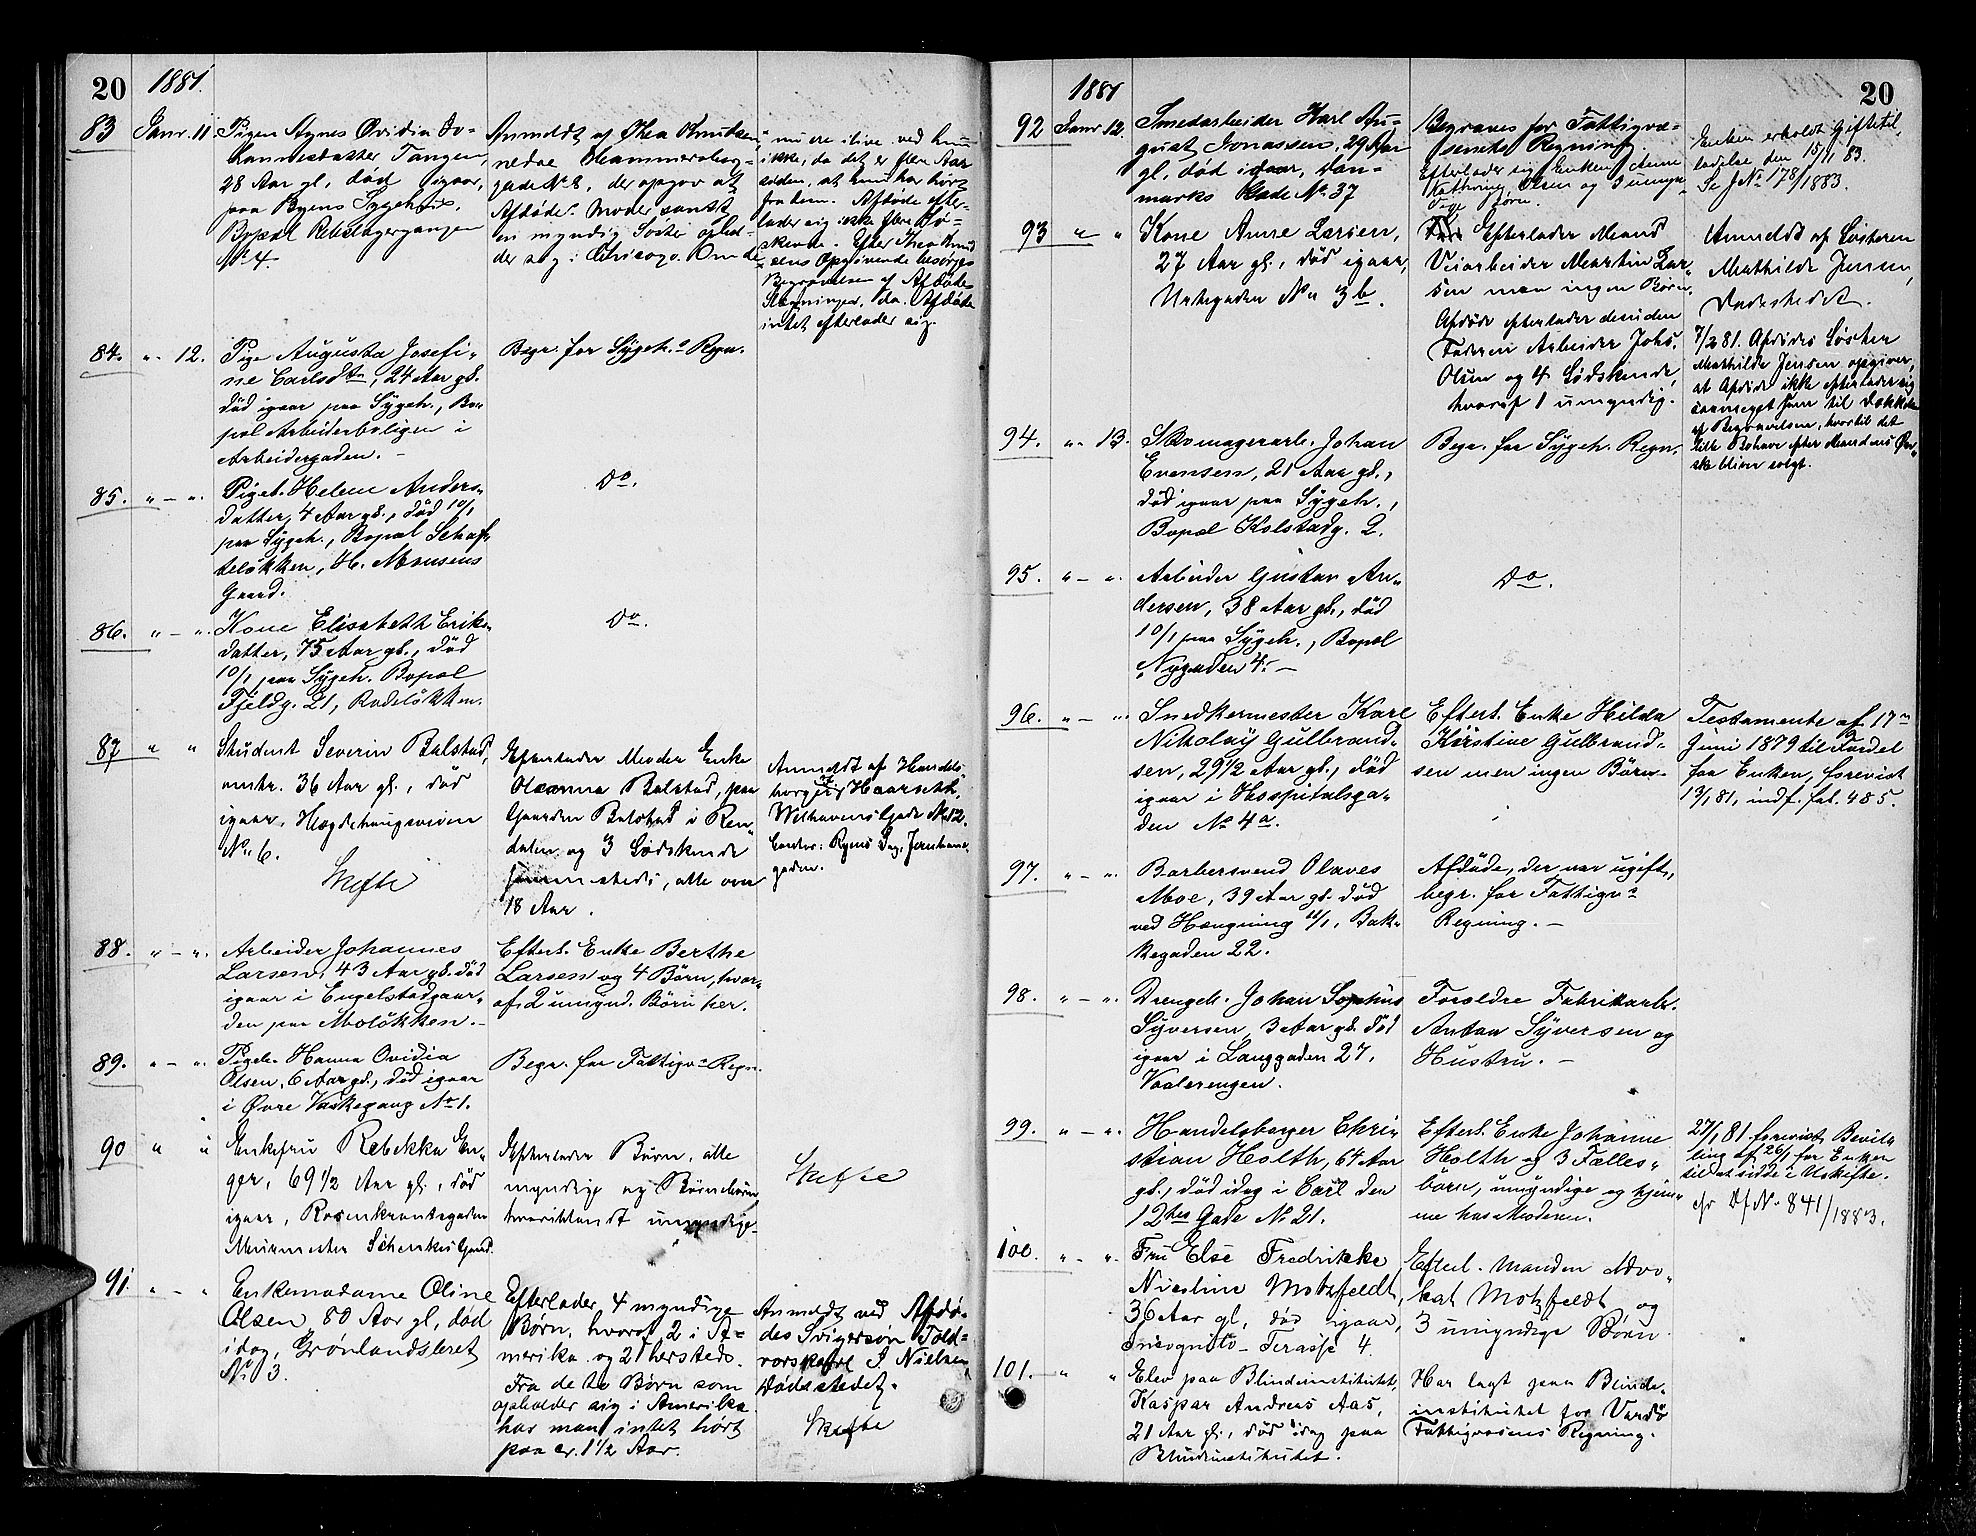 20
1881.
83
Janr. 11
Pigen Agnes Ovidia Jo-
hannesdatter Tangen,
28 Aar gl., død igaar,
paa Byens Sygehus,
Bopæl Rebslagergangen
No 4.
Anmeldt af Thea Knutsen,
nedre Hammersborg-
gade No 8, der opgav at
Afdøde's Moder samt
en myndig Søster ophol-
der sig i Chicago. Om de
nu ere ilive ved hun
ikke, da det er flere Aar
siden, at hun har hørt
fra dem. Afdøde efter-
lader sig ikke flere Sø-
skende. Efter Thea Knud
sens Opgivende besørges
Begravelsen af Afdødes
da Afdøde
intet efterlader sig.
84.
" - 12.
Pige Augusta Josefi-
ne Carlsdtr, 24 Aar gl.
død igaar paa Sygeh., Bo-
pæl Arbeiderboligen i
Arbeidergaden. -
Begr. for Sygeh.s Regn.
85.
" - "
Pigeb. Helene Anders-
datter, 4 Aar gl., død 10/1
paa Sygeh., Bopæl Schaf-
teløkken, H. Monsens
Gaard.
Do.
86.
" - "
Kone Elisabeth Eriks-
datter, 75 Aar gl., død
10/1 paa Sygeh. Bopæl
Fjeldg. 21, Rodeløkken.
Do.
87
" "
Student Severin Balstad,
omtr. 36 Aar gl., død
igaar, Hægdehaugsveien
No 6.
Skifte
Efterlader Moder Enke
Oleanna Balstad, paa
Gaarden Balstad i Ren-
dalen og 3 Sødskende
sammesteds, alle over
18 Aar.
Anmeldt af Handels-
borger H Haarseth,
Welhavens Gade No 12.
Contor: Ryens Gg. Jernbane-
gaden.
88.
" - "
Arbeider Johannes
Larsen, 43 Aar gl. død
igaar i Engelstadgaar-
den paa Moløkken. -
Efterl. Enke Berthe
Larsen og 4 Børn, hvor-
af 2 umynd. Børn her.
89.
" - "
Pigeb. Hanna Ovidia
Olsen, 6 Aar gl., død igaar
i Øvre Vaskegang No 1.
Begr. for Fattigv.s Regn.
90
" "
Enkefru Rebekka En-
ger, 69 1/2 Aar gl., død
igaar, Rosenkrantsgaden
Muurmester Schenkes Gaard.
Efterlader Børn, alle
myndige og Børnebørn
hvoriblandt umyndige.
Skifte
91.
" - "
Enkemadame Oline
Olsen, 80 Aar gl, død
idag, Grønlandsleret
No 13.
Efterlader 4 myndige
Børn, hvoraf 2 i A-
merika og 2 hersteds.
Fra de to Børn som
opholder sig i Amerika
har man intet hørt
paa cr. 1 1/2 Aar.
Anmeldt ved Afdø-
des Svigersøn Told-
rorskarl J. Nielsen,
Dødsstedet.
Skifte
20
1881
92
Janr 12.
Smedarbeider Karl Au-
gust Jonassen, 29 Aar
gl, død idaar, Dan-
marks Gade No 37
Begraves for Fattigvæ-
senets Regning.
Efterlader sig Enken Anne
Kathrine Olsen og 3 umyn-
dige Børn.
Enken erholdt Giftetil-
ladelse den 15/1 83.
Se J No 178/1883.
93
" - "
Kone Anne Larsen,
27 Aar gl., død igaar,
Urtegaden No 3b.
Efterlader Mand
Veiarbeider Martin Lar-
sen men ingen Børn.
Afdøde efterlader desuden
Faderen Arbeider Johs.
Olsen og 4 Sødskende,
hvoraf 1 umyndig.
Anmeldt af Søsteren
Mathilde Jensen,
Dødsstedet.
7/2 81. Afdødes Søster
Mathilde Jensen opgiver,
at Afdøde ikke efterlader sig
saameget som til Dækkelse
af Begravelsen, hvortil det
lille Bohave efter Mandens Øn-
ske bliver solgt.
94.
" - 13.
Skomagerarb. Johan
Evensen, 21 Aar gl.,
død igaar paa Sygeh.,
Bopæl Kolstadg. 2.
Begr. for Sygeh. Regn.
95.
" - "
Arbeider Gustav An-
dersen, 38 Aar gl., død
10/1 paa Sygeh., Bopæl
Nygaden 4. -
Do.
96.
" - "
Snedkermester Karl
Nikolay Gulbrand-
sen, 29 1/2 Aar gl., død
igaar i Hospitalsga-
den No 4a.
Efterl. Enke Hilda
Kirstine Gulbrand-
sen men ingen Børn.
Testamente af 17de
Juni 1879 til Fordel
for Enken, forevist
13/1 81, indf. fol. 485.
97.
" - "
Barbersvend Olaves
Moe, 39 Aar gl. død
ved Hængning 11/1, Bak-
kegaden 22.
Afdøde, der var ugift,
begr. for Fattigv.s
Regning. -
98.
" - "
Drengeb. Johan Sophus
Syversen, 3 Aar gl. død
igaar i Langgaden 27,
Vaalerengen.
Forældre Fabrikarb.
Anton Syversen og
Hustru. -
99.
" - "
Handelsborger Chri-
stian Holth, 64 Aar
gl., død idag i Carl den
12tes Gade No 21.
Efterl. Enke Johanne
Holth og 3 Fælles-
børn, umyndige og hjem-
me hos Moderen.
27/1 81 forevist Bevil-
ling af 26/1 for Enken
til at sidde i Uskifte.
cfr Df No 841/1883.
100.
" - "
Fru Else Fredrikke
Nicoline Motzfeldt,
36 Aar gl, død igaar,
Incognito-Terasse 4.
Efterl. Manden Advo-
kat Motzfeldt og
3 umyndige Børn.
101.
" "
Elev paa Blindeinstitutet,
Kaspar Andreas Aas,
21 Aar gl., død idag paa
Blindeinstitutet.
Har lagt paa Blinde-
institutet for Vardø
Fattigvæsens Regning.